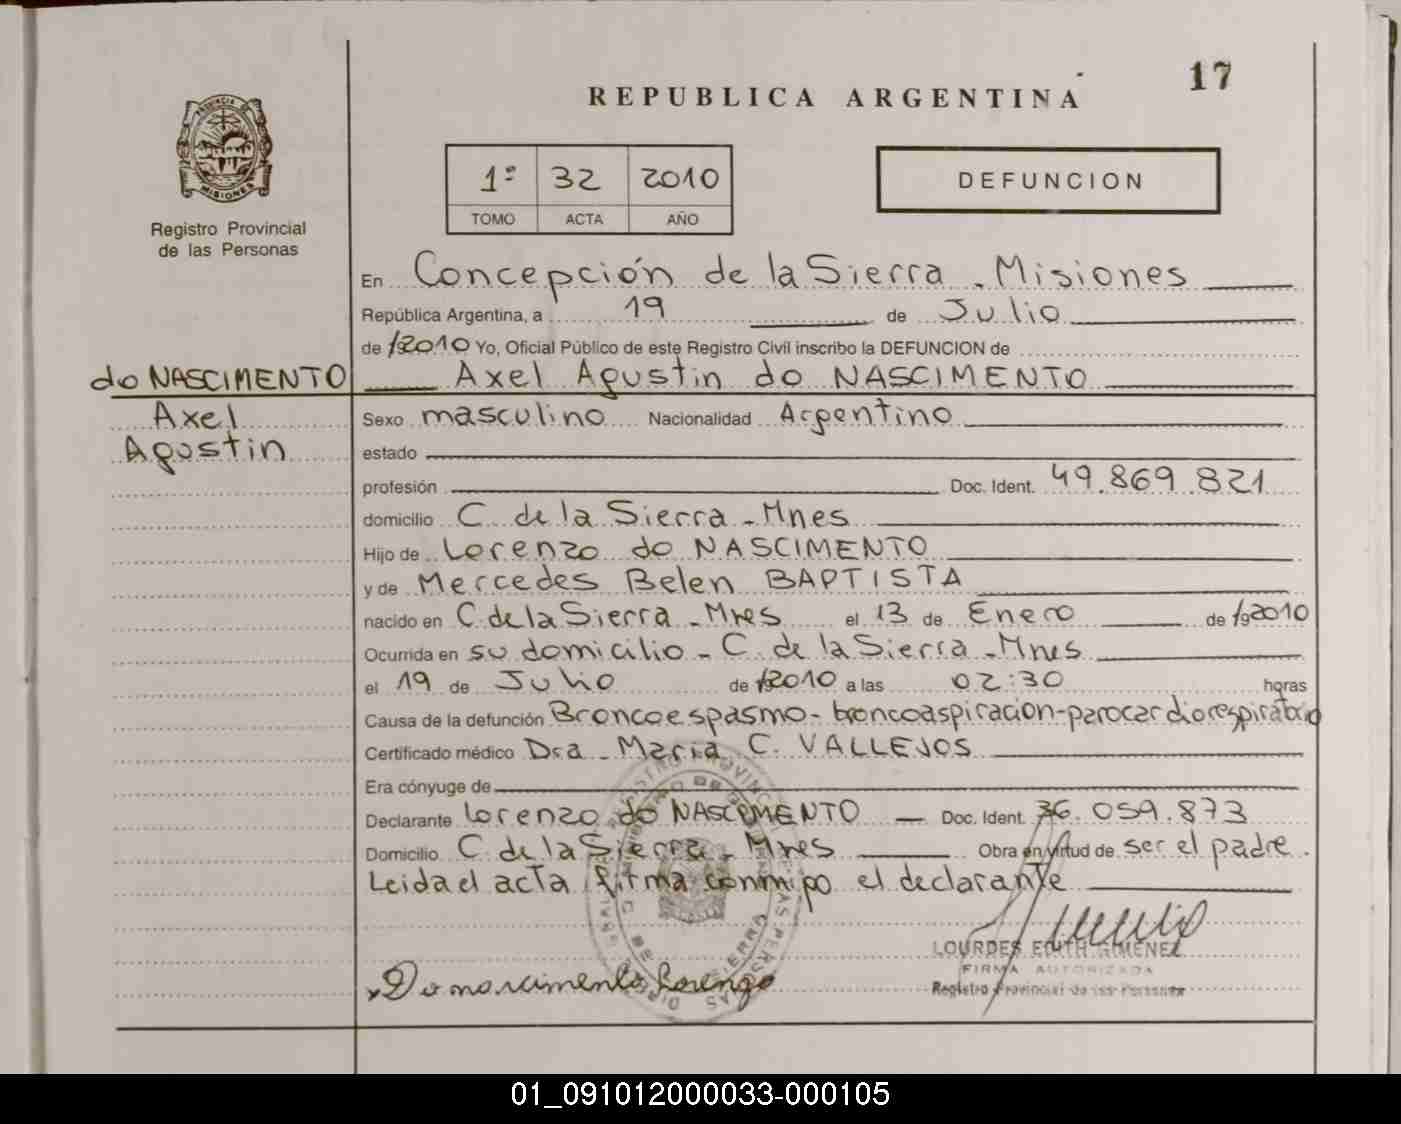 17
REPUBLICA ARGENTINA
PROVINCIA
MISIONES
1º 32 2010
TOMO ACTA AÑO
DEFUNCION
Registro Provincial
de las Personas
En Concepción de la Sierra - Misiones
República Argentina, a 19 de Julio
de 2010 Yo, Oficial Público de este Registro Civil inscribo la DEFUNCION de
do NASCIMENTO
Axel Agustin do NASCIMENTO
Axel
Agustin
Sexo masculino Nacionalidad Argentino
estado
profesión Doc. Ident. 49.869.821
domicilio C. de la Sierra - Mnes
Hijo de Lorenzo do NASCIMENTO
y de Mercedes Belen BAPTISTA
nacido en C. de la Sierra - Mnes el 13 de Enero de 2010
Ocurrida en su domicilio - C. de la Sierra - Mnes
el 19 de Julio de 2010 a las 02:30 horas
Causa de la defunción Broncoespasmo - broncoaspiración - parocardiorespiratorio
Certificado médico Dra. Maria C. VALLEJOS
Era cónyuge de
Declarante Lorenzo do NASCIMENTO Doc. Ident. 36.059.873
Domicilio C. de la Sierra - Mnes Obra en virtud de ser el padre.
Leida el acta firma conmigo el declarante
Do nascimento Lorenzo
LOURDES EDITH GIMENEZ
FIRMA AUTORIZADA
Registro Provincial de las Personas
01_091012000033-000105